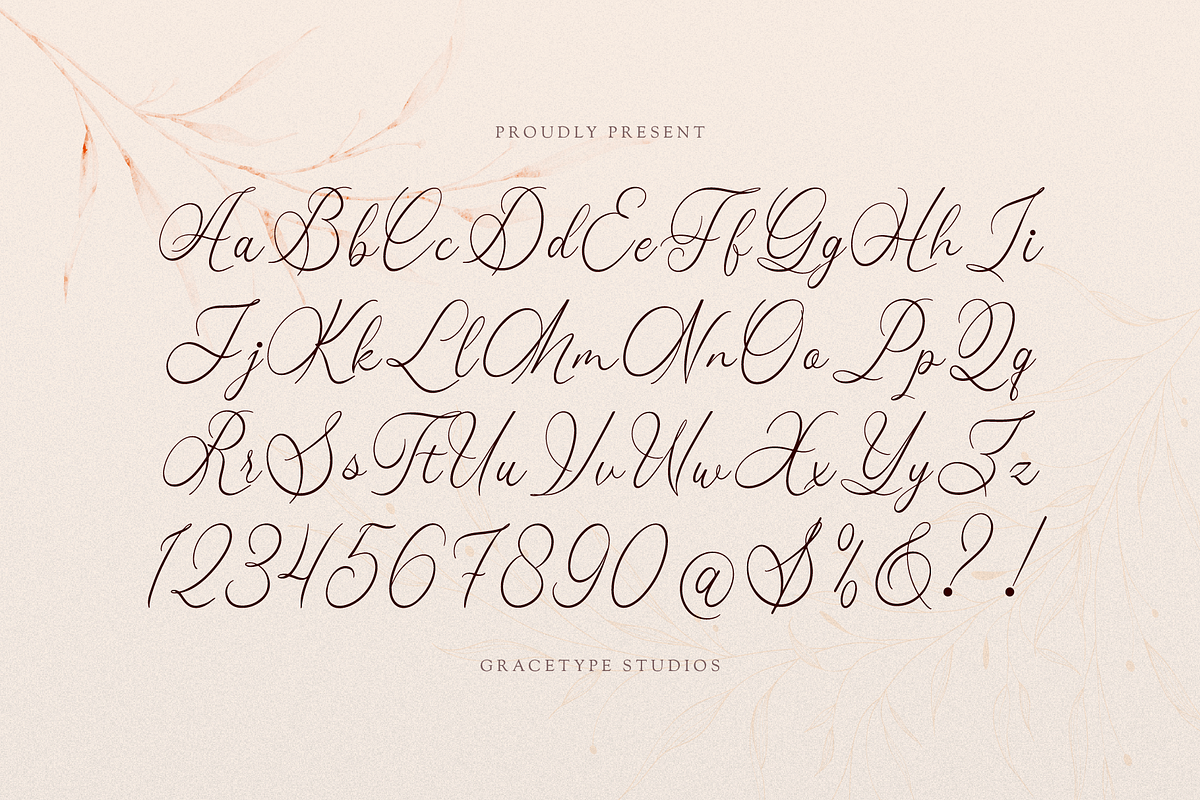 PROUDLY PRESENT
Aa Bb Cc Dd Ee Ff Gg Hh Ii
Jj Kk Ll Mm Nn Oo Pp Qq
Rr Ss Tt Uu Vv Ww Xx Yy Zz
1234567890@$%&?!
GRACETYPE STUDIOS